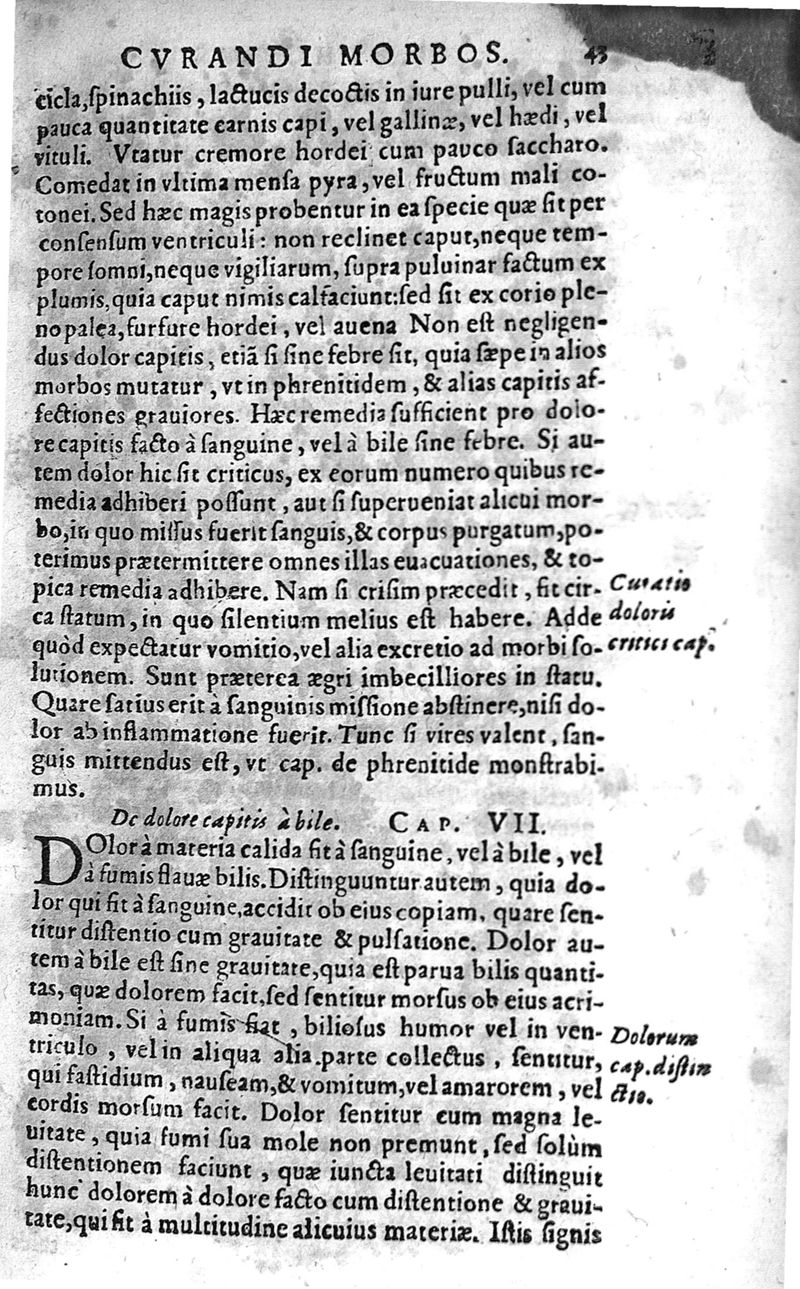 CVRANDI MORBOS. 43
cicla, ſpinachiis, lactucis decoctis in iure pulli, vel cum
pauca quantitate carnis capi, vel gallinæ, vel hædi, vel
vituli. Vtatur cremore hordei cum pauco ſaccharo.
Comedat in vltima menſa pyra, vel fructum mali co-
tonei. Sed hæc magis probentur in ea ſpecie quæ fit per
conſenſum ventriculi: non reclinet caput, neque tem-
pore ſomni, neque vigiliarum, ſupra puluinar factum ex
plumis, quia caput nimis calfaciunt: ſed fit ex corio ple-
no palea, furfure hordei, vel auena Non eſt negligen-
dus dolor capitis, etiã ſi ſine febre ſit, quia ſæpe in alios
morbos mutatur, vt in phrenitidem, & alias capitis af-
fectiones grauiores. Hæc remedia ſufficient pro dolo-
re capitis facto à ſanguine, vel à bile ſine febre. Si au-
tem dolor hic ſit criticus, ex eorum numero quibus re-
media adhiberi poſſunt, aut ſi ſuperueniat alicui mor-
bo, in quo miſſus fuerit ſanguis, & corpus purgatum, po-
terimus prætermittere omnes illas euacuationes, & to-
pica remedia adhibere. Nam ſi criſim præcedit, fit cir-
ca ſtatum, in quo ſilentium melius eſt habere. Adde
quòd expectatur vomitio, vel alia excretio ad morbi ſo-
lutionem. Sunt præterea ægri imbecilliores in ſtatu.
Quare ſatius erit à ſanguinis miſſione abſtinere, niſi do-
lor ab inflammatione fuerit. Tunc ſi vires valent, ſan-
guis mittendus eſt, vt cap. de phrenitide monſtrabi-
mus.
Curatio
doloris
critici cap.
De dolore capitis à bile. CAP. VII.
DOlor à materia calida fit à ſanguine, vel à bile, vel
à fumis flauæ bilis. Diſtinguuntur autem, quia do-
lor qui fit à ſanguine, accidit ob eius copiam, quare ſen-
titur diſtentio cum grauitate & pulſatione. Dolor au-
tem à bile eſt ſine grauitate, quia eſt parua bilis quanti-
tas, quæ dolorem facit, ſed ſentitur morſus ob eius acri-
moniam. Si à fumis fiat, bilioſus humor vel in ven-
triculo, vel in aliqua alia parte collectus, ſentitur,
qui faſtidium, nauſeam, & vomitum, vel amarorem, vel
cordis morſum facit. Dolor ſentitur cum magna le-
uitate, quia fumi ſua mole non premunt, ſed ſolùm
diſtentionem faciunt, quæ iuncta leuitati diſtinguit
hunc dolorem à dolore facto cum diſtentione & graui-
tate, qui fit à multitudine alicuius materiæ. Iſtis ſignis
Dolorum
cap. diſtin
ctio.